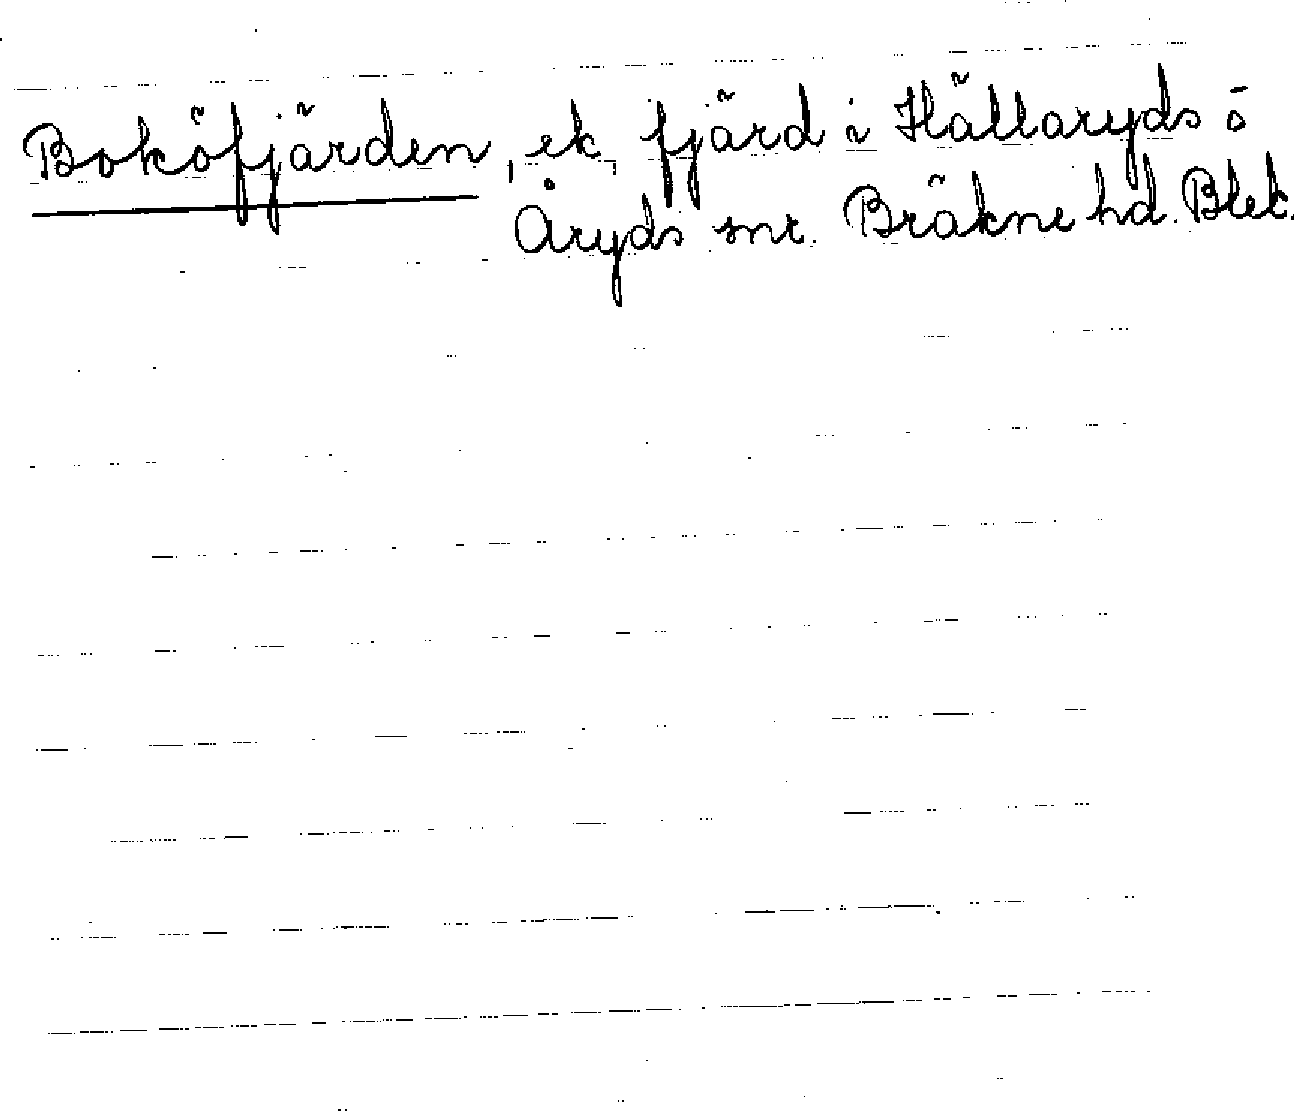 Boköfjärden, ek, fjärd i Hällaryds o
Åryds snr. Bräkne hd. Blek.